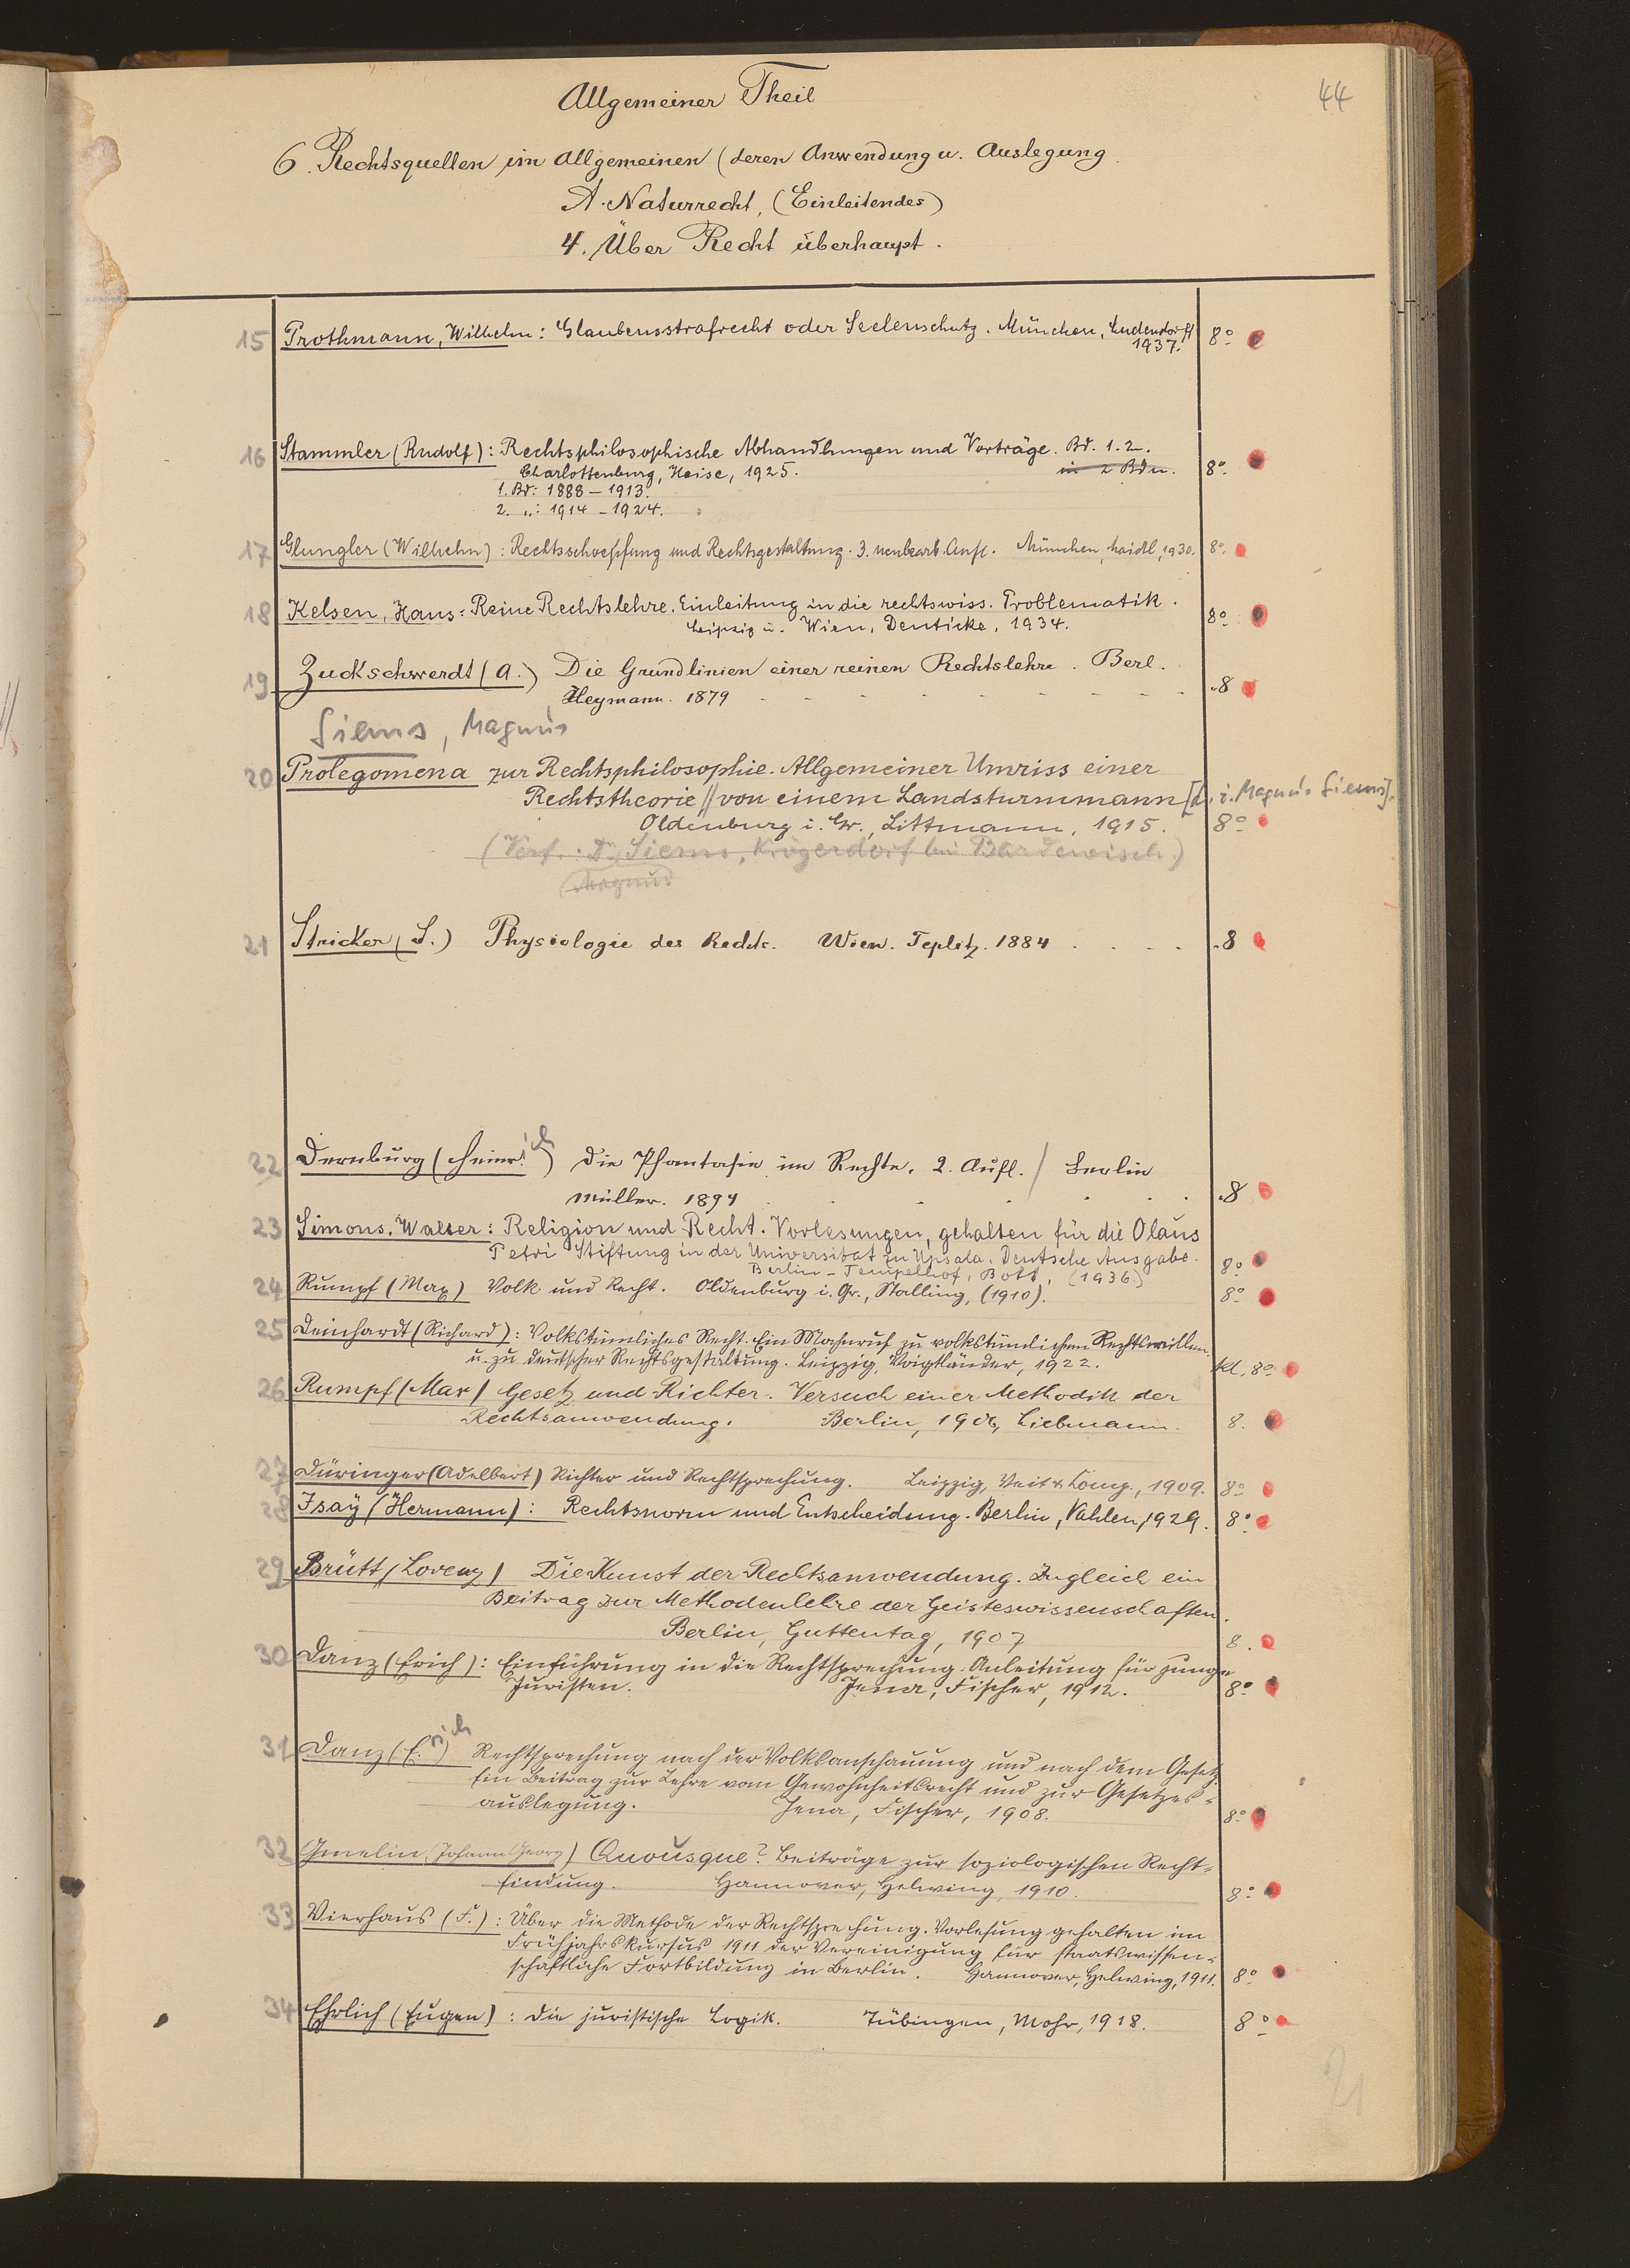 44
Allgemeiner Theil
6. Rechtsquellen im Allgemeinen (deren Anwendung u. Auslegung
A. Naturrecht, (Einleitendes)
4. Über Recht überhaupt.
15 Prothmann, Wilhelm: Glaubensstrafrecht oder Seelenschutz. München, Ludendorff 8°
1937.
16 Stammler (Rudolf): Rechtsphilosophische Abhandlungen und Vorträge. Bd. 1. 2.
Charlottenburg, Heise, 1925. in 2 Bdn. 8°.
1. Bd: 1888 – 1913.
2. „: 1914 – 1924.
17 Glungler (Wilhelm): Rechtsschoepfung und Rechtsgestaltung. 3. neubearb. Aufl. München, Maidl, 1930. 8°.
18 Kelsen, Hans: Reine Rechtslehre. Einleitung in die rechtswiss. Problematik.
Leipzig u. Wien, Deuticke, 1934. 8°
19 Zuckschwerdt (A.) Die Grundlinien einer reinen Rechtslehre. Berl.
Heymann. 1879 - - - - - - - - „8
Siems, Magnus
20 Prolegomena zur Rechtsphilosophie. Allgemeiner Umriss einer
Rechtstheorie // von einem Landsturmmann [d. i. Magnus Siems].
Oldenburg i. Gr., Littmann, 1915. 8°
(Verf.: Dr. Siems, Krögerdorf bei Bardewisch)
Magnus
21 Stricker (S.) Physiologie des Rechts. Wien. Teplitz. 1884 . . . . „8
22 Dernburg (Heinrich) Die Phantasie im Rechte. 2. Aufl. / Berlin
Müller. 1894 . . . . . . „8
23 Simons, Walter: Religion und Recht. Vorlesungen, gehalten für die Olaus
Petri Stiftung in der Universität zu Upsala. Deutsche Ausgabe.
Berlin-Tempelhof, Bott, (1936) 8°
24 Rumpf (Max) Volk und Recht. Oldenburg i. Gr., Stalling, (1910). 8°
25 Deinhardt (Richard): Volkstümliches Recht. Ein Mahnruf zu volkstümlichem Rechtswillen
u. zu deutscher Rechtsgestaltung. Leipzig, Voigtländer, 1922. kl. 8°
26 Rumpf (Max) Gesetz und Richter. Versuch einer Methodik der
Rechtsanwendung. Berlin, 1906, Liebmann. 8.
27 Düringer (Adelbert) Richter und Rechtsprechung. Leipzig, Veit & Comp., 1909. 8°
28 Isaÿ (Hermann): Rechtsnorm und Entscheidung. Berlin, Vahlen, 1929. 8°
29 Brütt (Lorenz) Die Kunst der Rechtsanwendung. Zugleich ein
Beitrag zur Methodenlehre der Geisteswissenschaften.
Berlin, Guttentag, 1907 8.
30 Danz (Erich): Einführung in die Rechtsprechung. Anleitung für junge
Juristen. Jena, Fischer, 1912. 8°
31 Danz (Erich) Rechtsprechung nach der Volksanschauung und nach dem Gesetz.
Ein Beitrag zur Lehre vom Gewohnheitsrecht und zur Gesetzes-
auslegung. Jena, Fischer, 1908. 8°
32 Gmelin (Johann Georg) Quousque? Beiträge zur soziologischen Recht-
findung. Hannover, Helwing, 1910. 8°
33 Vierhaus (F.): Über die Methode der Rechtsprechung. Vorlesung gehalten im
Frühjahrskursus 1911 der Vereinigung für staatswissen-
schaftliche Fortbildung in Berlin. Hannover, Helwing, 1911. 8°
34 Ehrlich (Eugen): Die juristische Logik. Tübingen, Mohr, 1918. 8°